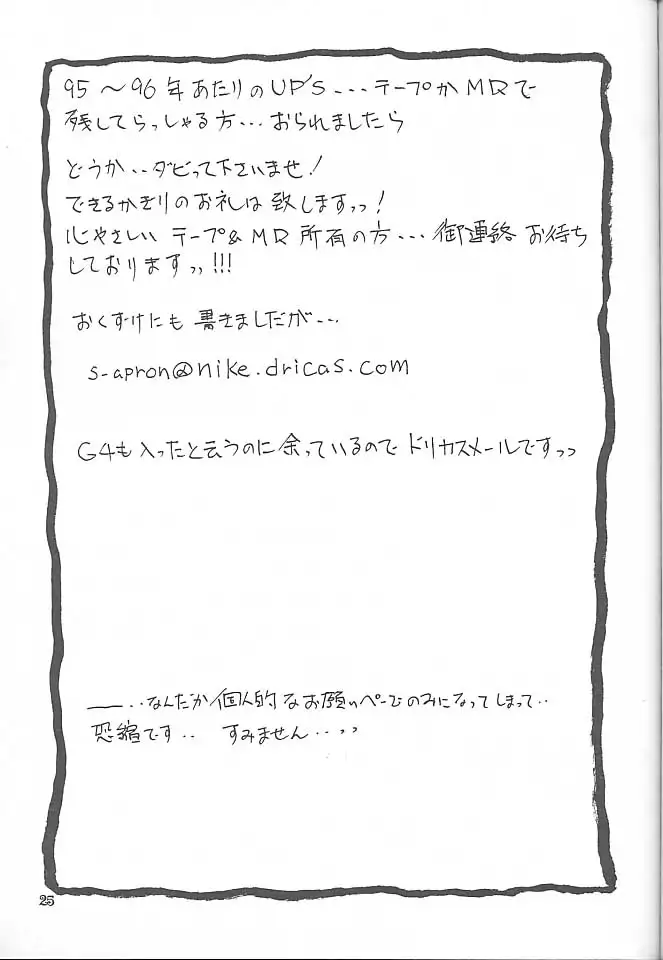 95〜96年あたりのUP'S...テープかMDで
残してらっしゃる方...おられましたら
どうか..ダビって下さいませ!
できるかぎりのお礼は致しますっっ!
心やさしい テープ&MD所有の方...御連絡お待ち
しておりますっっ!!!
おくずけにも書きましただが...
s-apron@nike.dricas.com
G4も入ったと云うのに余っているので ドリカスメールですっっ
——...なんだか個人的なお願いページのみになってしまって..
恐縮です.. すみません..っっ
25